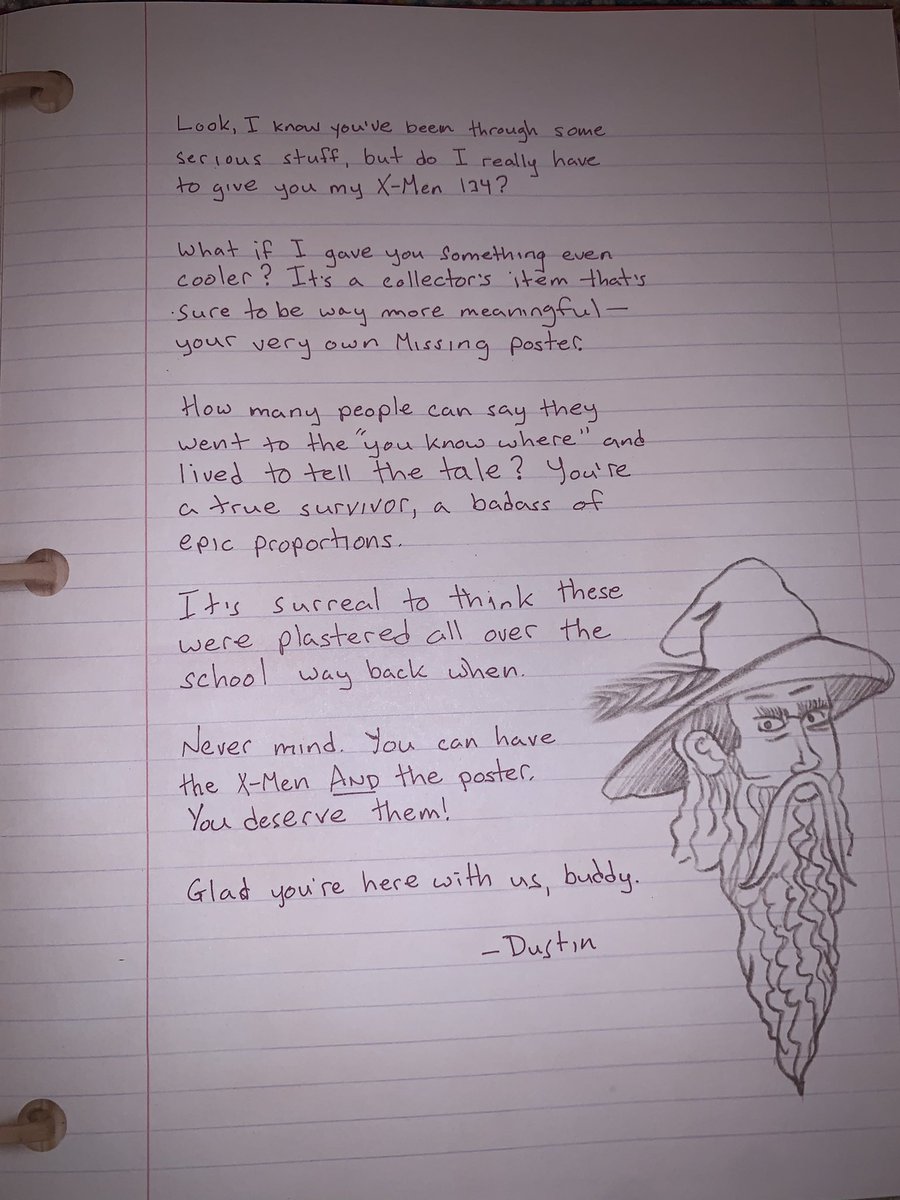 Look, I know you've been through some
serious stuff, but do I really have
to give you my X-Men 134?
What if I gave you something even
cooler? It's a collector's item that's
sure to be way more meaningful—
your very own Missing poster.
How many people can say they
went to the "you know where" and
lived to tell the tale? You're
a true survivor, a badass of
epic proportions.
It's surreal to think these
were plastered all over the
school way back when.
Never mind. You can have
the X-Men AND the poster.
You deserve them!
Glad you're here with us, buddy.
—Dustin